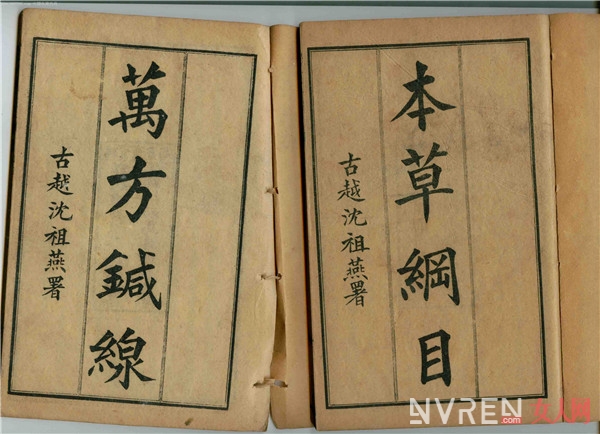 本草綱目
古越沈祖燕署
萬方鍼線
古越沈祖燕署
NVREN.com女人网